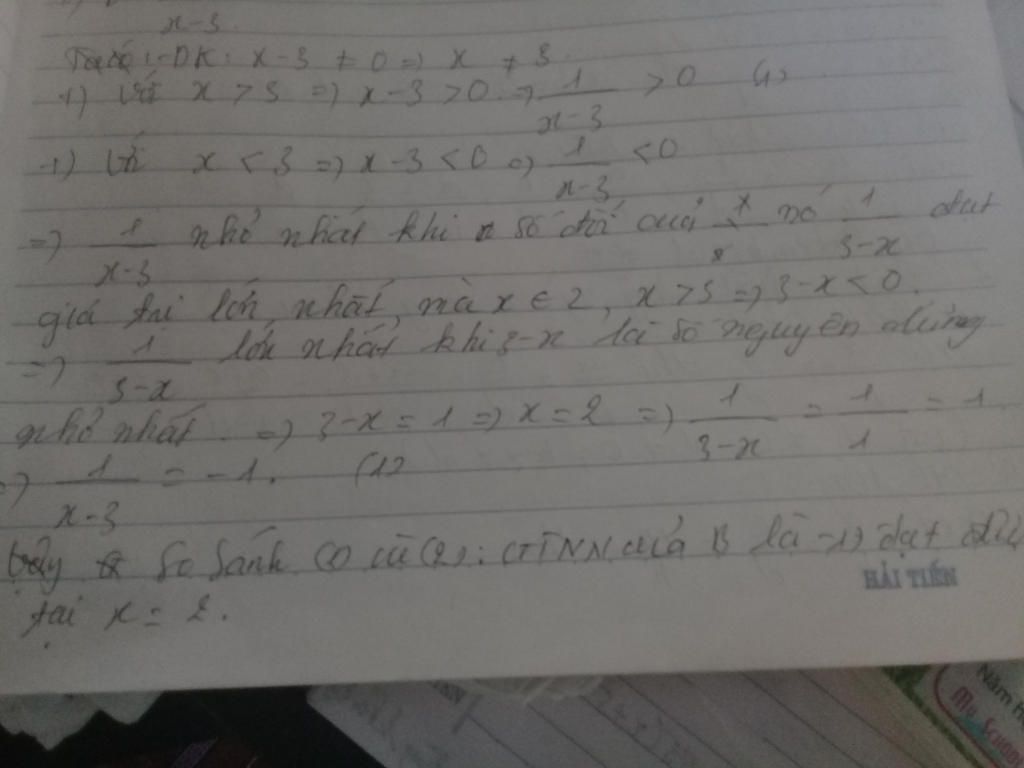 x-3
Ta có: -ĐK: x-3 ≠ 0 => x ≠ 3.
+) Với x > 3 => x-3 > 0 => 1/x-3 > 0 (1)
+) Với x < 3 => x-3 < 0 => 1/x-3 < 0
=> 1/x-3 nhỏ nhất khi số đối của nó 1/3-x đạt
giá trị lớn nhất, mà x ∈ Z, x > 3 => 3-x < 0.
=> 1/3-x lớn nhất khi 3-x là số nguyên dương
nhỏ nhất. => 3-x = 1 => x = 2 => 1/3-x = 1/1 = 1
=> 1/x-3 = -1.
Vậy So sánh (1) và (2): GTNN của B là -1) đạt
HẢI TIẾN
tại x = 2.
Năm H
My School